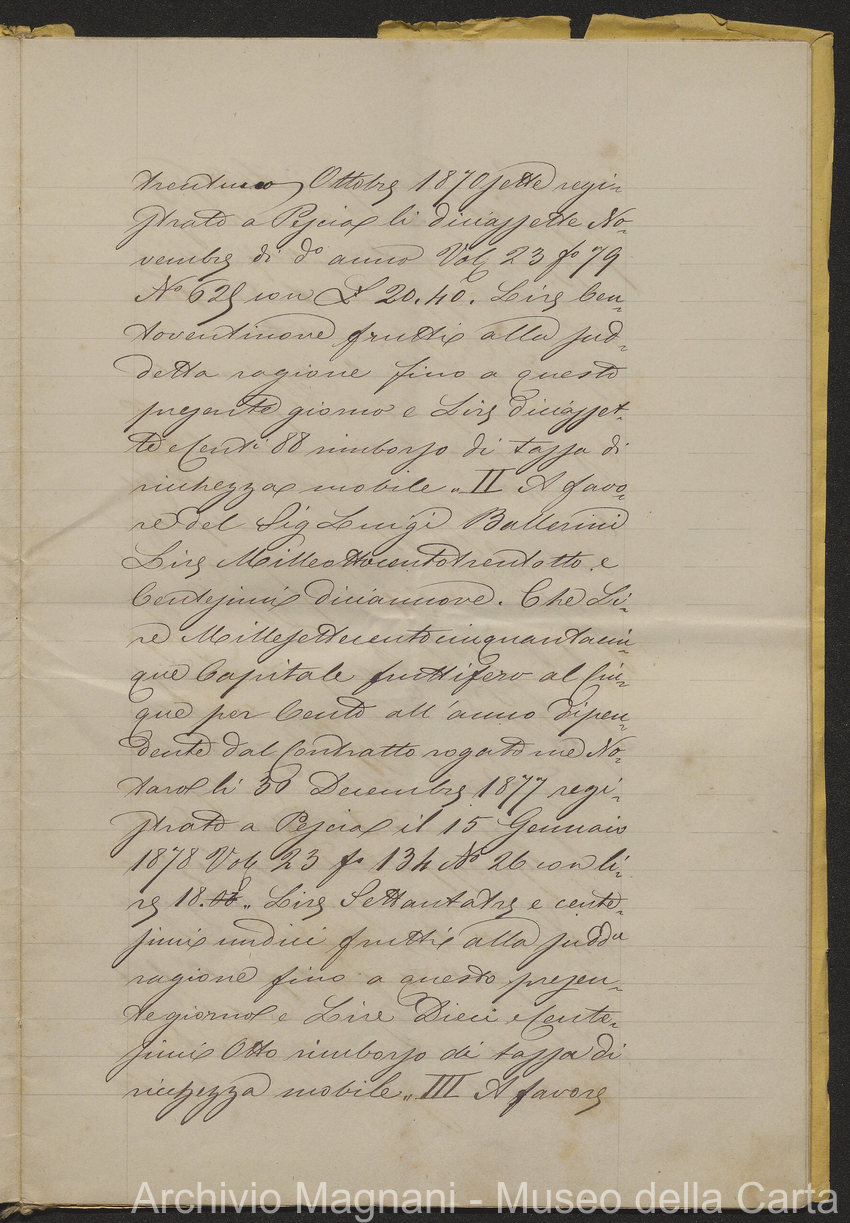 trentuno Ottobre 187sette regi=
strato a Pescia li diciassette No=
vembre di do anno Vole 23 fo 79
No 625 con £ 20.40. Lire Cen=
toventinove frutti alla sud=
detta ragione fino a questo
presente giorno e Lire diciasset=
te e Centi 88 rimborso di tassa di
ricchezza mobile „ II A favo=
re del Sig Luigi Ballerini
Lire Milleottocentotrentotto e
Centesimi diciannove. Che Li=
re Millesettecentocinquantacin=
que Capitale fruttifero al Cin=
que per Cento all'anno dipen=
dente dal Contratto rogato me No=
taro li 30 Decembre 1877 regi=
strato a Pescia il 15 Gennaio
1878 Vole 23 fo 134 No 26 con li=
re 18. „ Lire Settantatre e cente=
simi undici frutti alla sudda
ragione fino a questo presen=
te giorno e Lire Dieci e Cente=
simi Otto rimborso di tassa di
ricchezza mobile „ III A favore
Archivio Magnani - Museo della Carta